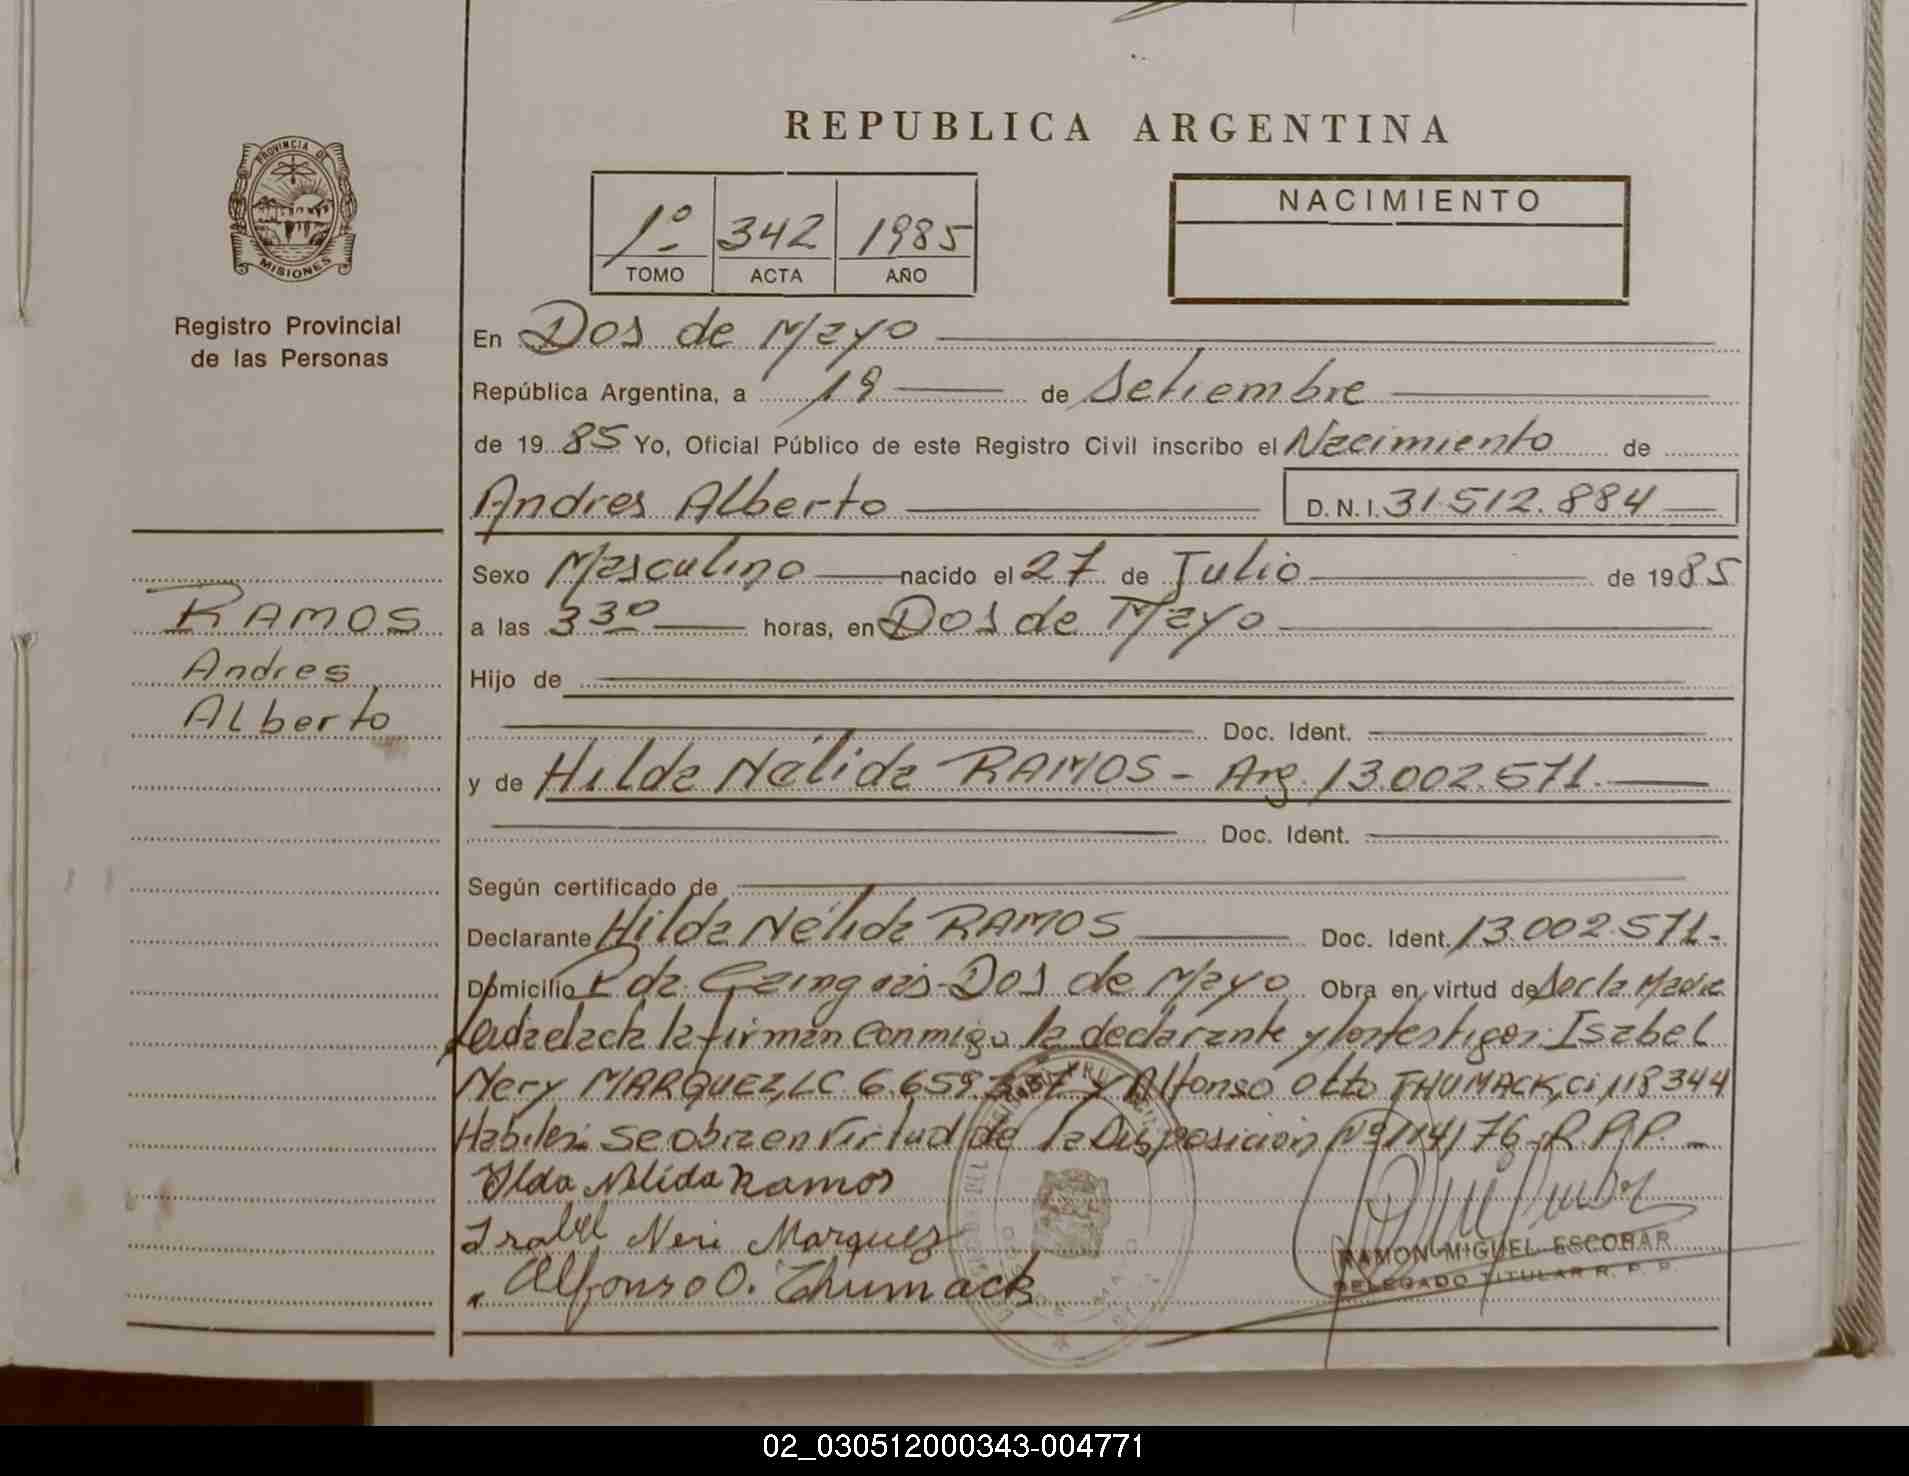 REPUBLICA ARGENTINA
PROVINCIA DE
MISIONES
Registro Provincial
de las Personas
1º 342 1985
TOMO ACTA AÑO
NACIMIENTO
En Dos de Mayo
República Argentina, a 19 de Setiembre
de 1985 Yo, Oficial Público de este Registro Civil inscribo el Nacimiento de
Andres Alberto D.N.I. 31.512.884
RAMOS
Andres
Alberto
Sexo Masculino nacido el 27 de Julio de 1985
a las 3 30 horas, en Dos de Mayo
Hijo de
Doc. Ident.
y de Hilda Nélida RAMOS - Arg. 13.002.571.
Doc. Ident.
Según certificado de
Declarante Hilda Nélida RAMOS Doc. Ident. 13.002.571.-
Domicilio Pda. Dos de Mayo Obra en virtud de Ser la Madre
Leida el acta la firman conmigo la declarante y los testigos: Isabel
Nery MARQUEZ, LC 6.659. y Alfonso Otto THUMACK, Ci 118344
Habiles: Se obra en Virtud de la Disposicion Nº 114/76-R.P.P. -
Ilda Nelida Ramos
Isabel Neri Marquez
Alfonso O. Thumack
RAMON MIGUEL ESCOBAR
DELEGADO TITULAR R. P. P.
02_030512000343-004771